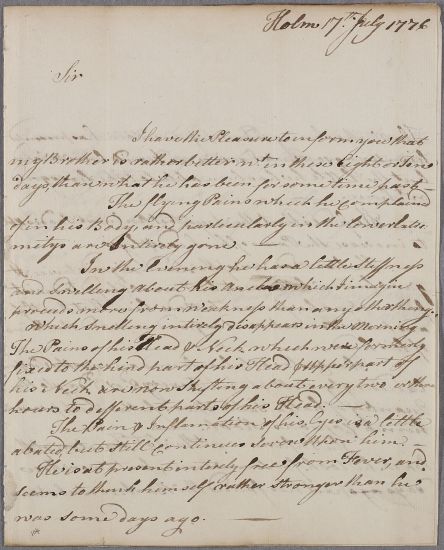 Holm 17th July 1776
Sir
I have the Pleasure to inform you that
my Brother is rather better wt in these Eight or Ten
days than what he has been for some time past —
The flying Pains which he Complained
of in his Body, and particularly in the lower Extre
mitys are Entirely gone —
In the Evening he has a little stiffness
and Swelling about his Ancles which I imagine
proceeds more from Weakness than any other thing:
which Swelling intirely disappears in the Morning
The Pains of his Head & Neck which were formerly
fixed to the hind part of his Head & upper part of
his Neck are now Shifting about every two or three
hours to different parts of his Head. —
The Pain & Inflamation of his Eyes is a little
abated but still Continues severe upon him.
He is at present intirely free from Fever, and
seems to think himself rather stronger than he
was some days ago. —